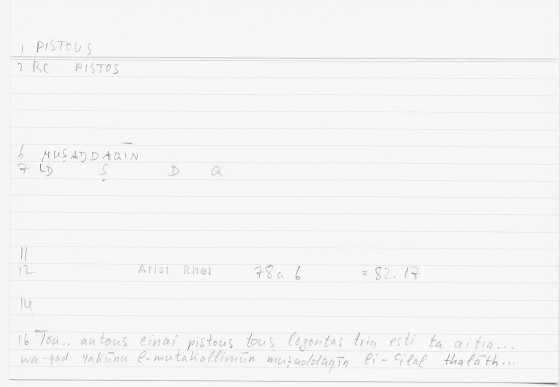 1 PISTOUS
2 RC PISTOS
6 MUṢADDAQĪN
7 LD Ṣ D Q
11
12 Arist Rhet 78a 6 = 82.17
14
16 Tou.. autous einai pistous tous legontas tria esti ta aitia...
wa-qad yakūnu l-mutakallimūn muṣaddaqīn li-ʿilal thalāth...